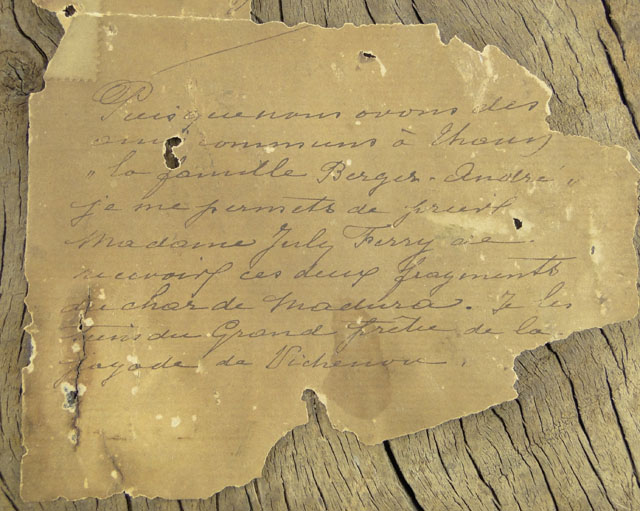 Puisque nous avons des
amis communs à Thoun
"la famille Berger-André"
je me permets de prier
Madame July Ferry de
recevoir ces deux fragments
du char de Madura. Je les
tiens du Grand prêtre de la
pagode de Vichenou.